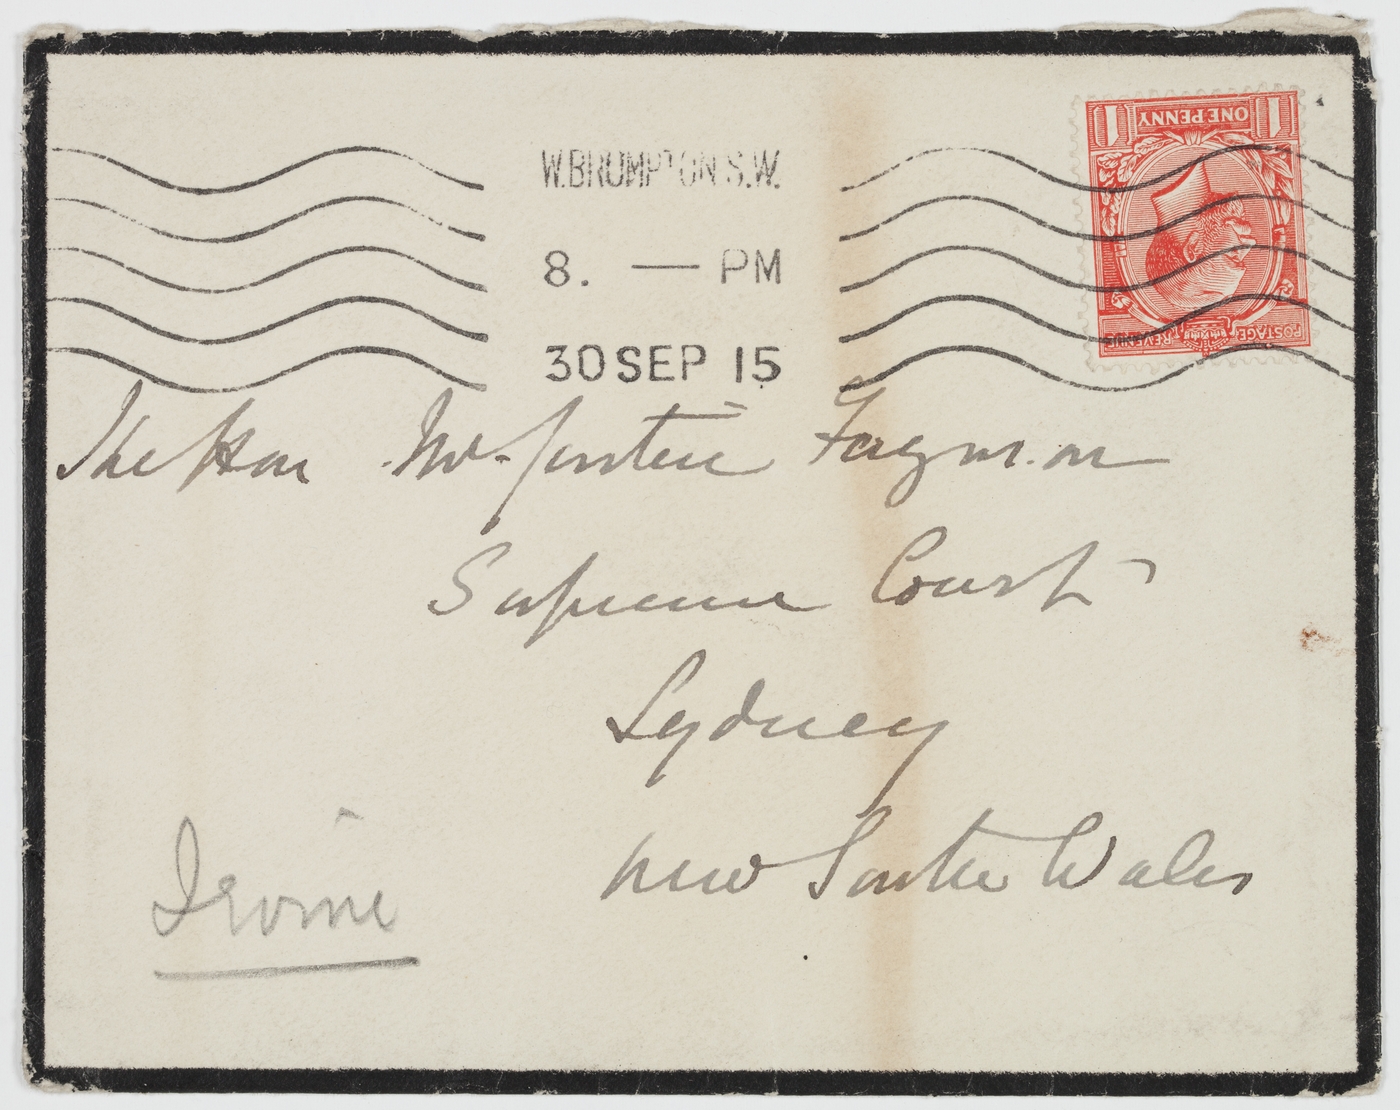 W. BROMPTON S.W.
8. — PM
30 SEP 15
1 ONE PENNY 1
POSTAGE REVENUE
The Hon Mr. Justice Ferguson
Supreme Court
Sydney
New South Wales
Irvine